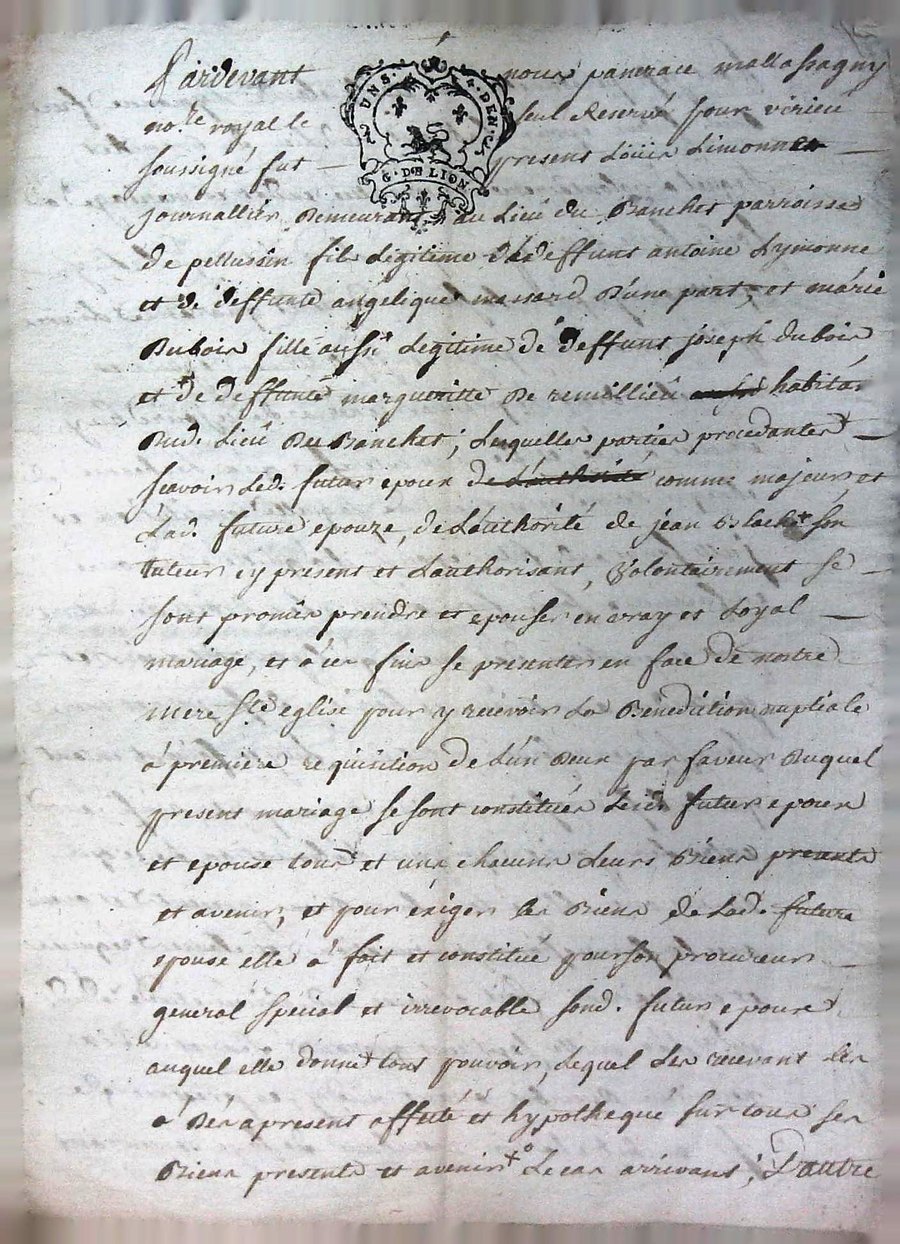 Pardevant nous pancrace mallassagny
UNS. 4. DEN.
G. DE LION
no.re royal le seul Reservé pour virieu
soussigné fut present Loüis Limonne
journallier Demeurant au Lieu du Banchet parroisse
de pellussin fils Légitime de deffunt antoine Lymonne
et de deffunte angelique massard D'une part, et marie
Dubois fille aussi Légitime de deffunt joseph dubois
et de deffunte margueritte De remillieu habitan
Dud. Lieu Du Banchet; Lesquelles parties procedantes
scavoir Led. futur epoux de L'authorité comme majeur et
Lad. future epouze, de L'authorité de jean son
tuteur cy present et L'authorisant, volontairement se
sont promis prendre et epouser en vray et Loyal
mariage, et à ces fins se presenter en face de nostre
mere Ste eglise pour y recevoir La Benediction nuptiale
à premiere requisition de L'un Deux par faveur Duquel
present mariage se sont constitués Lesd. futurs epoux
et epouse tous et uns chacuns Leurs Biens presents
et avenir, et pour exiger les Biens de Lad. future
epouse elle à fait et constitué pour son procureur
general special et irrevocable sond. futur epoux
auquel elle donne tout pouvoir, Lequel Les recevant les
à Dés apresent affecté et hypothequé sur tous ses
Biens presents et avenir Le cas arrivant; D'autre